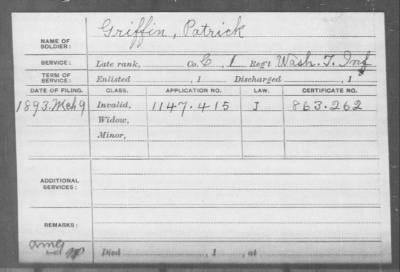 NAME OF SOLDIER: Griffin, Patrick
SERVICE: Late rank, Co. C, 1 Reg't Wash. T. Inf
TERM OF SERVICE: Enlisted , 1 Discharged , 1
DATE OF FILING. CLASS. APPLICATION NO. LAW. CERTIFICATE NO.
1893. Mch 9 Invalid, 1147.415 J 863.262
Widow,
Minor,
ADDITIONAL SERVICES:
REMARKS:
Died , 1 , at